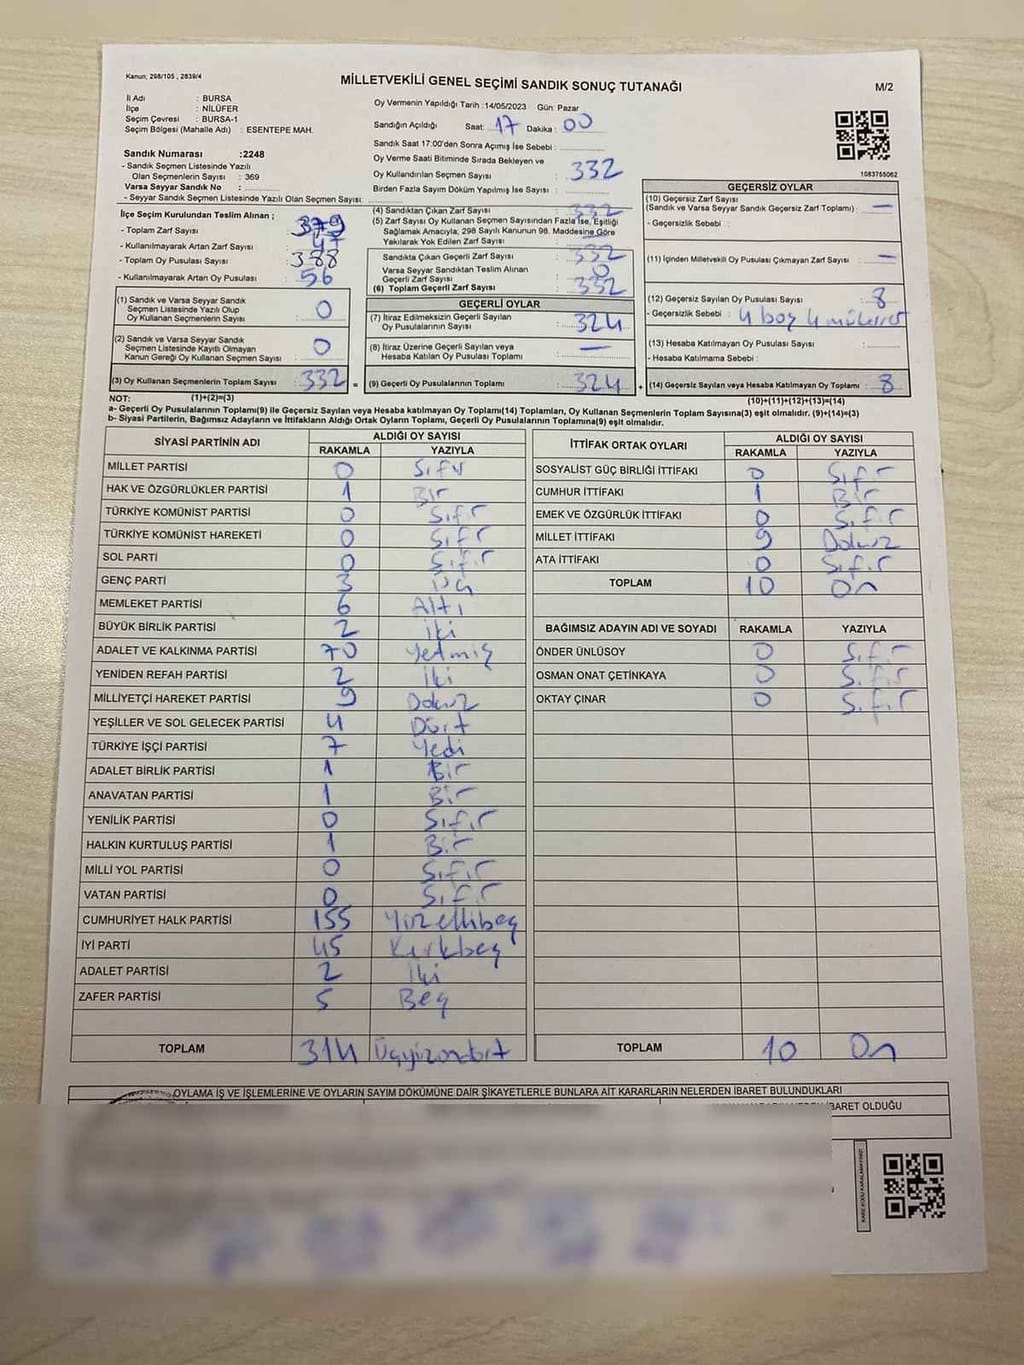 Kanun; 298/105 , 2839/4
MİLLETVEKİLİ GENEL SEÇİMİ SANDIK SONUÇ TUTANAĞI
M/2
İl Adı : BURSA
İlçe : NİLÜFER
Seçim Çevresi : BURSA-1
Seçim Bölgesi (Mahalle Adı) : ESENTEPE MAH.
Oy Vermenin Yapıldığı Tarih :14/05/2023 Gün: Pazar
Sandığın Açıldığı Saat: 17 Dakika : 00
Sandık Saat 17:00'den Sonra Açılmış İse Sebebi :
Sandık Numarası :2248
- Sandık Seçmen Listesinde Yazılı
Olan Seçmenlerin Sayısı : 369
Varsa Seyyar Sandık No :
- Seyyar Sandık Seçmen Listesinde Yazılı Olan Seçmen Sayısı:
Oy Verme Saati Bitiminde Sırada Bekleyen ve
Oy Kullandırılan Seçmen Sayısı : 332
Birden Fazla Sayım Döküm Yapılmış İse Sayısı :
1083755062
İlçe Seçim Kurulundan Teslim Alınan ;
- Toplam Zarf Sayısı : 379
- Kullanılmayarak Artan Zarf Sayısı : 47
- Toplam Oy Pusulası Sayısı : 388
- Kullanılmayarak Artan Oy Pusulası : 56
(1) Sandık ve Varsa Seyyar Sandık
Seçmen Listesinde Yazılı Olup
Oy Kullanan Seçmenlerin Sayısı : 0
(2) Sandık ve Varsa Seyyar Sandık
Seçmen Listesinde Kayıtlı Olmayan
Kanun Gereği Oy Kullanan Seçmen Sayısı : 0
(3) Oy Kullanan Seçmenlerin Toplam Sayısı : 332 =
(4) Sandıktan Çıkan Zarf Sayısı : 332
(5) Zarf Sayısı Oy Kullanan Seçmen Sayısından Fazla İse, Eşitliği
Sağlamak Amacıyla; 298 Sayılı Kanunun 98. Maddesine Göre
Yakılarak Yok Edilen Zarf Sayısı :
Sandıkta Çıkan Geçerli Zarf Sayısı : 332
Varsa Seyyar Sandıktan Teslim Alınan
Geçerli Zarf Sayısı : 0
(6) Toplam Geçerli Zarf Sayısı : 332
GEÇERLİ OYLAR
(7) İtiraz Edilmeksizin Geçerli Sayılan
Oy Pusulalarının Sayısı : 324
(8) İtiraz Üzerine Geçerli Sayılan veya
Hesaba Katılan Oy Pusulası Toplamı : —
(9) Geçerli Oy Pusulalarının Toplamı : 324 +
GEÇERSİZ OYLAR
(10) Geçersiz Zarf Sayısı
(Sandık ve Varsa Seyyar Sandık Geçersiz Zarf Toplamı) : —
- Geçersizlik Sebebi :
(11) İçinden Milletvekili Oy Pusulası Çıkmayan Zarf Sayısı : —
(12) Geçersiz Sayılan Oy Pusulası Sayısı : 8
- Geçersizlik Sebebi : 4 boş 4 mükerrer
(13) Hesaba Katılmayan Oy Pusulası Sayısı :
- Hesaba Katılmama Sebebi :
(14) Geçersiz Sayılan veya Hesaba Katılmayan Oy Toplamı : 8
NOT: (1)+(2)=(3) (10)+(11)+(12)+(13)=(14)
a- Geçerli Oy Pusulalarının Toplamı(9) ile Geçersiz Sayılan veya Hesaba katılmayan Oy Toplamı(14) Toplamları, Oy Kullanan Seçmenlerin Toplam Sayısına(3) eşit olmalıdır. (9)+(14)=(3)
b- Siyasi Partilerin, Bağımsız Adayların ve İttifakların Aldığı Ortak Oyların Toplamı, Geçerli Oy Pusulalarının Toplamına(9) eşit olmalıdır.
SİYASİ PARTİNİN ADI ALDIĞI OY SAYISI
RAKAMLA YAZIYLA
MİLLET PARTİSİ 0 Sıfır
HAK VE ÖZGÜRLÜKLER PARTİSİ 1 Bir
TÜRKİYE KOMÜNİST PARTİSİ 0 Sıfır
TÜRKİYE KOMÜNİST HAREKETİ 0 Sıfır
SOL PARTİ 0 Sıfır
GENÇ PARTİ 3 Üç
MEMLEKET PARTİSİ 6 Altı
BÜYÜK BİRLİK PARTİSİ 2 İki
ADALET VE KALKINMA PARTİSİ 70 Yetmiş
YENİDEN REFAH PARTİSİ 2 İki
MİLLİYETÇİ HAREKET PARTİSİ 9 Dokuz
YEŞİLLER VE SOL GELECEK PARTİSİ 4 Dört
TÜRKİYE İŞÇİ PARTİSİ 7 Yedi
ADALET BİRLİK PARTİSİ 1 Bir
ANAVATAN PARTİSİ 1 Bir
YENİLİK PARTİSİ 0 Sıfır
HALKIN KURTULUŞ PARTİSİ 1 Bir
MİLLİ YOL PARTİSİ 0 Sıfır
VATAN PARTİSİ 0 Sıfır
CUMHURİYET HALK PARTİSİ 155 Yüzellibeş
İYİ PARTİ 45 Kırkbeş
ADALET PARTİSİ 2 İki
ZAFER PARTİSİ 5 Beş
TOPLAM 314 Üçyüzondört
İTTİFAK ORTAK OYLARI ALDIĞI OY SAYISI
RAKAMLA YAZIYLA
SOSYALİST GÜÇ BİRLİĞİ İTTİFAKI 0 Sıfır
CUMHUR İTTİFAKI 1 Bir
EMEK VE ÖZGÜRLÜK İTTİFAKI 0 Sıfır
MİLLET İTTİFAKI 9 Dokuz
ATA İTTİFAKI 0 Sıfır
TOPLAM 10 On
BAĞIMSIZ ADAYIN ADI VE SOYADI RAKAMLA YAZIYLA
ÖNDER ÜNLÜSOY 0 Sıfır
OSMAN ONAT ÇETİNKAYA 0 Sıfır
OKTAY ÇINAR 0 Sıfır
TOPLAM 10 On
OYLAMA İŞ VE İŞLEMLERİNE VE OYLARIN SAYIM DÖKÜMÜNE DAİR ŞİKAYETLERLE BUNLARA AİT KARARLARIN NELERDEN İBARET BULUNDUKLARI
İBARET OLDUĞU
KARE KODU KARALAMAYINIZ!